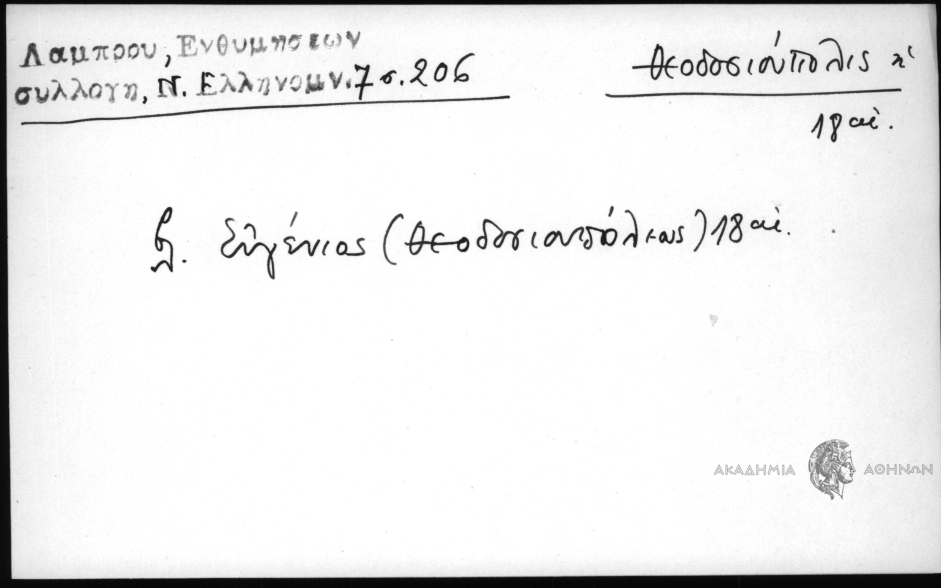 Λαμπρου, Ενθυμησεων
συλλογη, Ν. Ελληνομν. 7 σ. 206
Θεοδοσιούπολις ἡ
18 αἰ.
βλ. Εὐγένιος (Θεοδοσιουπόλεως) 18 αἰ.
ΑΚΑΔΗΜΙΑ ΑΘΗΝΩΝ